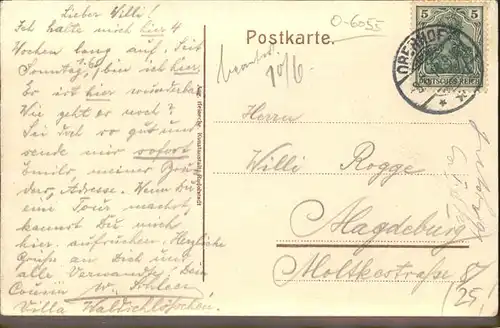 Lieber Willi!
Ich halte mich hier 4
Wochen lang auf. Seit
Sonntag, bin ich hier.
Es ist hier wunderbar
Wie geht es noch?
Sei doch so gut und
sende mir sofort
Emils, meiner
Adresse. Wenn Du
eine Tour machst,
kannst Du mich
hier aufsuchen. Herzliche
Grüße an Dich und
alle Verwandte! Dein
Cousin W.
Villa Waldschlösschen.
O-6055
Postkarte.
10/6.
5 5
DEUTSCHES REICH
OBERHOF
Herrn
Willi Rogge
Magdeburg
Moltkestraße 8/
(25!